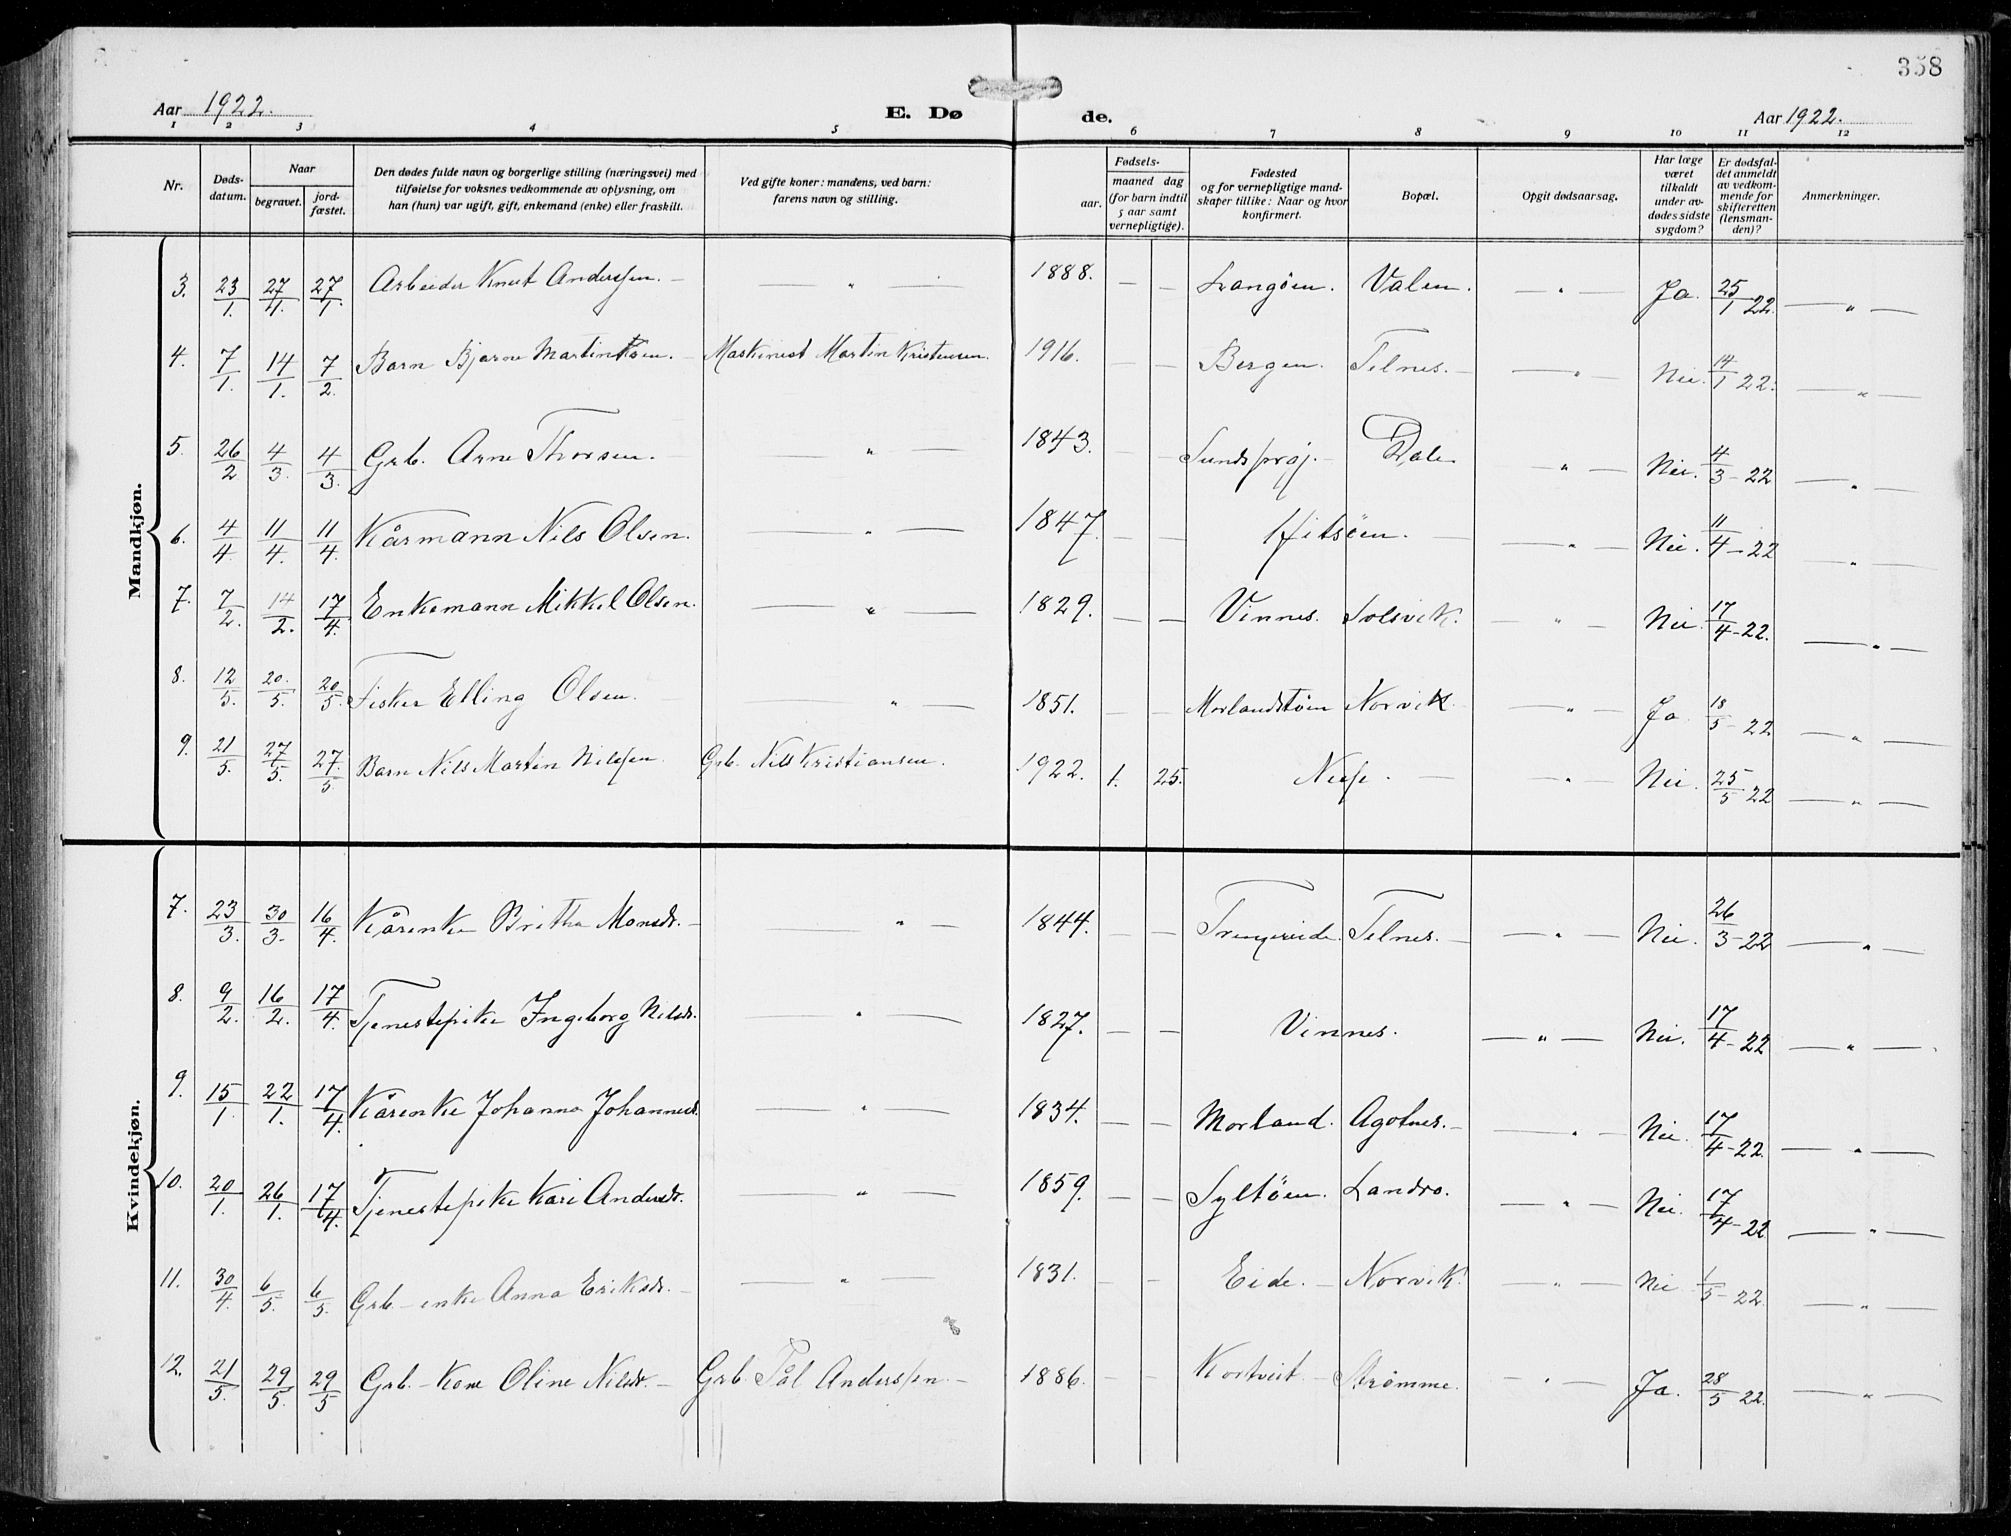 358
Aar 1922. E. Dø de. Aar 1922.
1 2 3 4 5 6 7 8 9 10 11 12
Nr. Døds-datum. Naar begravet. jord-fæstet. Den dødes fulde navn og borgerlige stilling (næringsvei) med tilføielse for voksnes vedkommende av oplysning, om han (hun) var ugift, gift, enkemand (enke) eller fraskilt. Ved gifte koner: mandens, ved barn: farens navn og stilling. Fødsels- aar. maaned dag (for barn indtil 5 aar samt vernepligtige). Fødested og for vernepligtige mand-skaper tillike: Naar og hvor konfirmert. Bopæl. Opgit dødsaarsag. Har læge været tilkaldt under av-dødes sidste sygdom? Er dødsfal-det anmeldt av vedkom-mende for skifteretten (lensman-den)? Anmerkninger.
Mandkjøn.
3. 23/1. 27/4. 27/1. Arbeider Knut Anderssen. — " — 1888. — — Langøen. Valen. — " — Ja. 25/1 22. — " —
4. 7/1. 14/1. 7/2. Barn Bjarne Martinsen. — Maskinist Martin Kristensen. 1916. — — Bergen. Telnes. — " — Nei. 14/1 22. — " —
5. 26/2 4/3. 4/3. Grb. Arne Thorsen. — " — 1843. — — Sunds prgj. — Dale — " — Nei. 4/3 - 22 — " —
6. 4/4. 11/4. 11/4. Kårmann Nils Olsen. — " — 1847. — — Hitsøen. — — " — Nei. 11/4 - 22 — " —
7. 7/2. 14/2. 17/4. Enkemann Mikkel Olsen. — " — 1829. — — Vinnes. Solsvik. — " — Nei. 17/4 - 22. — " —
8. 12/5. 20/5. 20/5. Fisker Elling Olsen. — " — 1851. — — Morlandstøen Norvik — " — Ja. 18/5 - 22 — " —
9. 21/5. 27/5. 27/5 Barn Nils Martin Nilssen. Grb. Nils Kristiansen. 1922. 1. 25. Nese. — — " — Nei. 25/5 22 — " —
Kvindekjøn.
7. 23/3. 30/3. 16/4. Kårenke Britha Monsdr. — — " — 1844. — — Trengereide. Telnes. — — " — Nei. 26/3 - 22 — " —
8. 9/2. 16/2. 17/4. Tjenestepike Ingeborg Nilsdr. — " — 1827. — — Vinnes. — " — Nei. 17/4 - 22 — " —
9. 15/1. 22/1. 17/4. Kårenke Johanna Johannesdr. — " — 1834. — — Morland. Agotnes. — — " — Nei. 17/4 - 22. — " —
10. 20/1. 26/1. 17/4. Tjenestepike Kari Andersdr. — " — 1859. — — Syltøen. Landro. — " — Nei. 17/4 - 22 — " —
11. 30/4. 6/5. 6/5. Grb - enke Anna Eriksdr. — — " — 1831. — — Eide. — Norvik. — " — Nei 1/5 - 22. — " —
12. 21/5. 29/5. 29/5 Grb - Kone Oline Nilsdr. — Grb. Pål Anderssen. — 1886. — — Kortveit. — Strømme. — " — Ja. 28/5 22. — " —